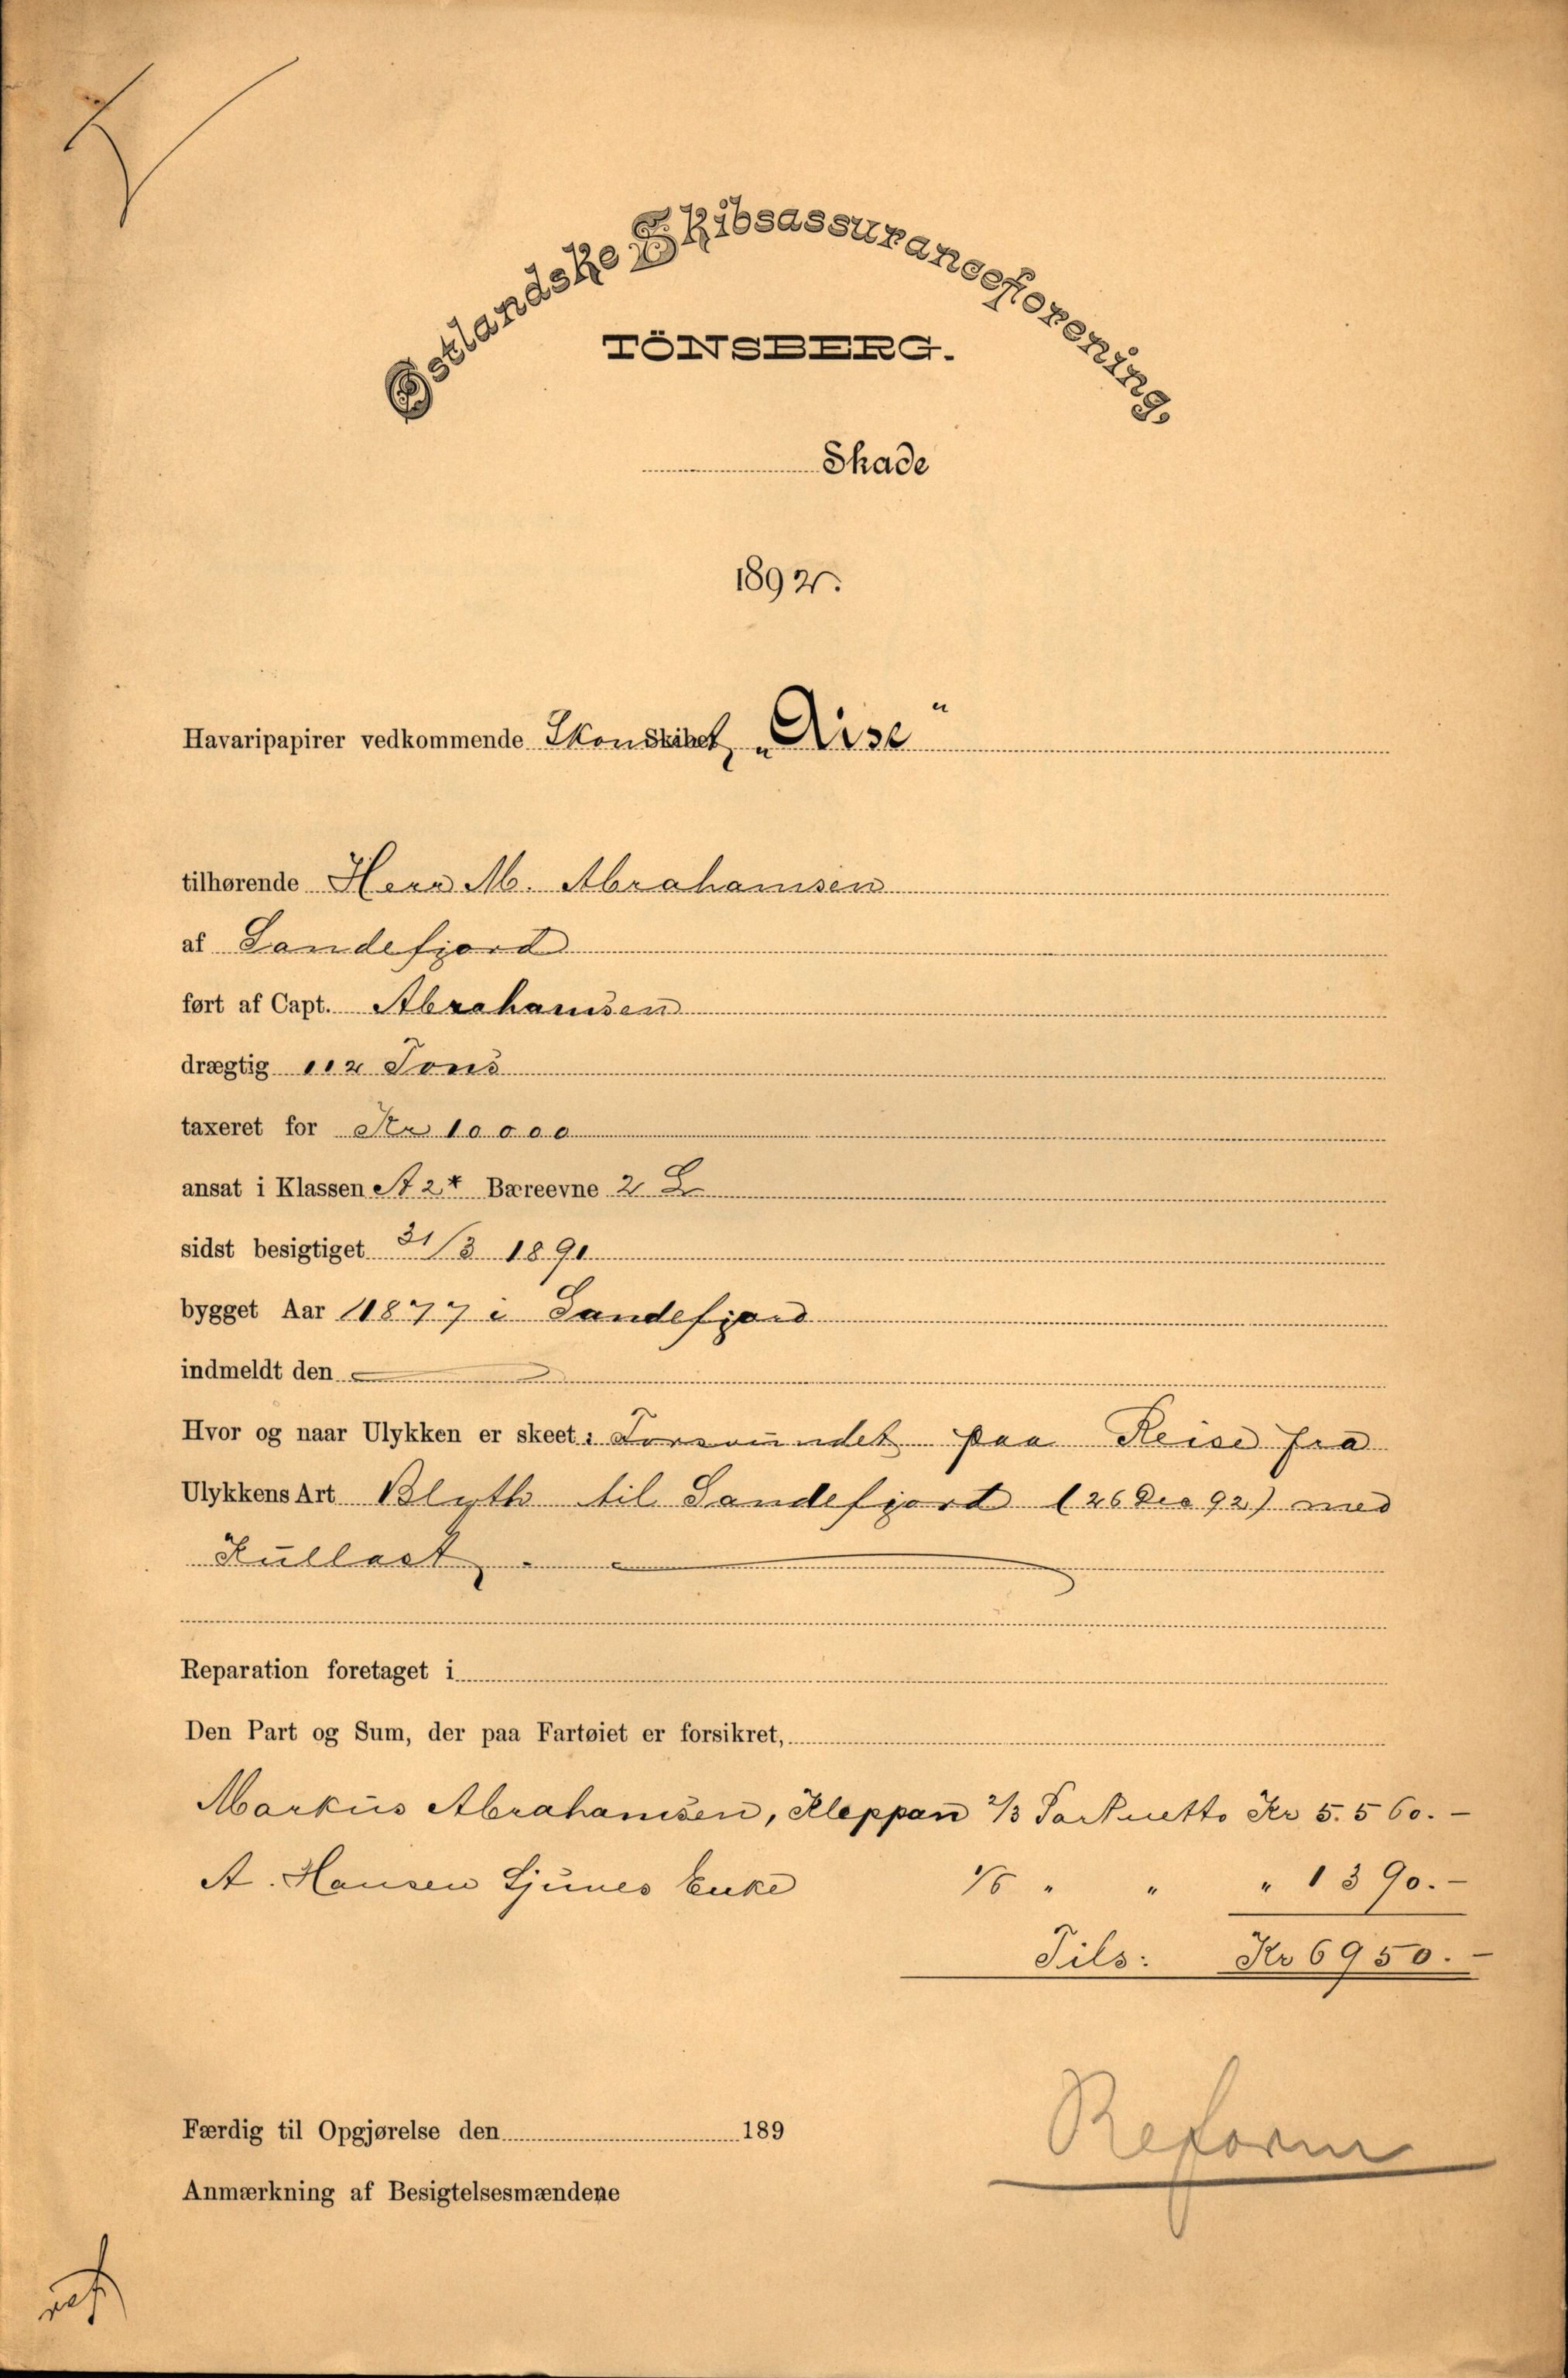 Østlandske Skibsassuranceforening,
TÖNSBERG.
Skade
1892.
Havaripapirer vedkommende Skonskibet, „Aise“
tilhørende Herr M. Abrahamsen
af Sandefjord
ført af Capt. Abrahamsen
drægtig 112 Tons
taxeret for Kr 10000
ansat i Klassen A 2* Bæreevne 2 L
sidst besigtiget 31/3 1891
bygget Aar 1877 i Sandefjord
indmeldt den
Hvor og naar Ulykken er skeet: Forsvundet paa Reise fra
Ulykkens Art Blyth til Sandefjord (26 Dec 92) med
Kullast
Reparation foretaget i
Den Part og Sum, der paa Fartøiet er forsikret,
Markus Abrahamsen, Kleppan 2/3 Part netto Kr 5.560.-
A. Hansen Enke 1/6 " " " 1390.-
Tils: Kr 6950.-
Færdig til Opgjørelse den 189
Reform
Anmærkning af Besigtelsesmændene
ref